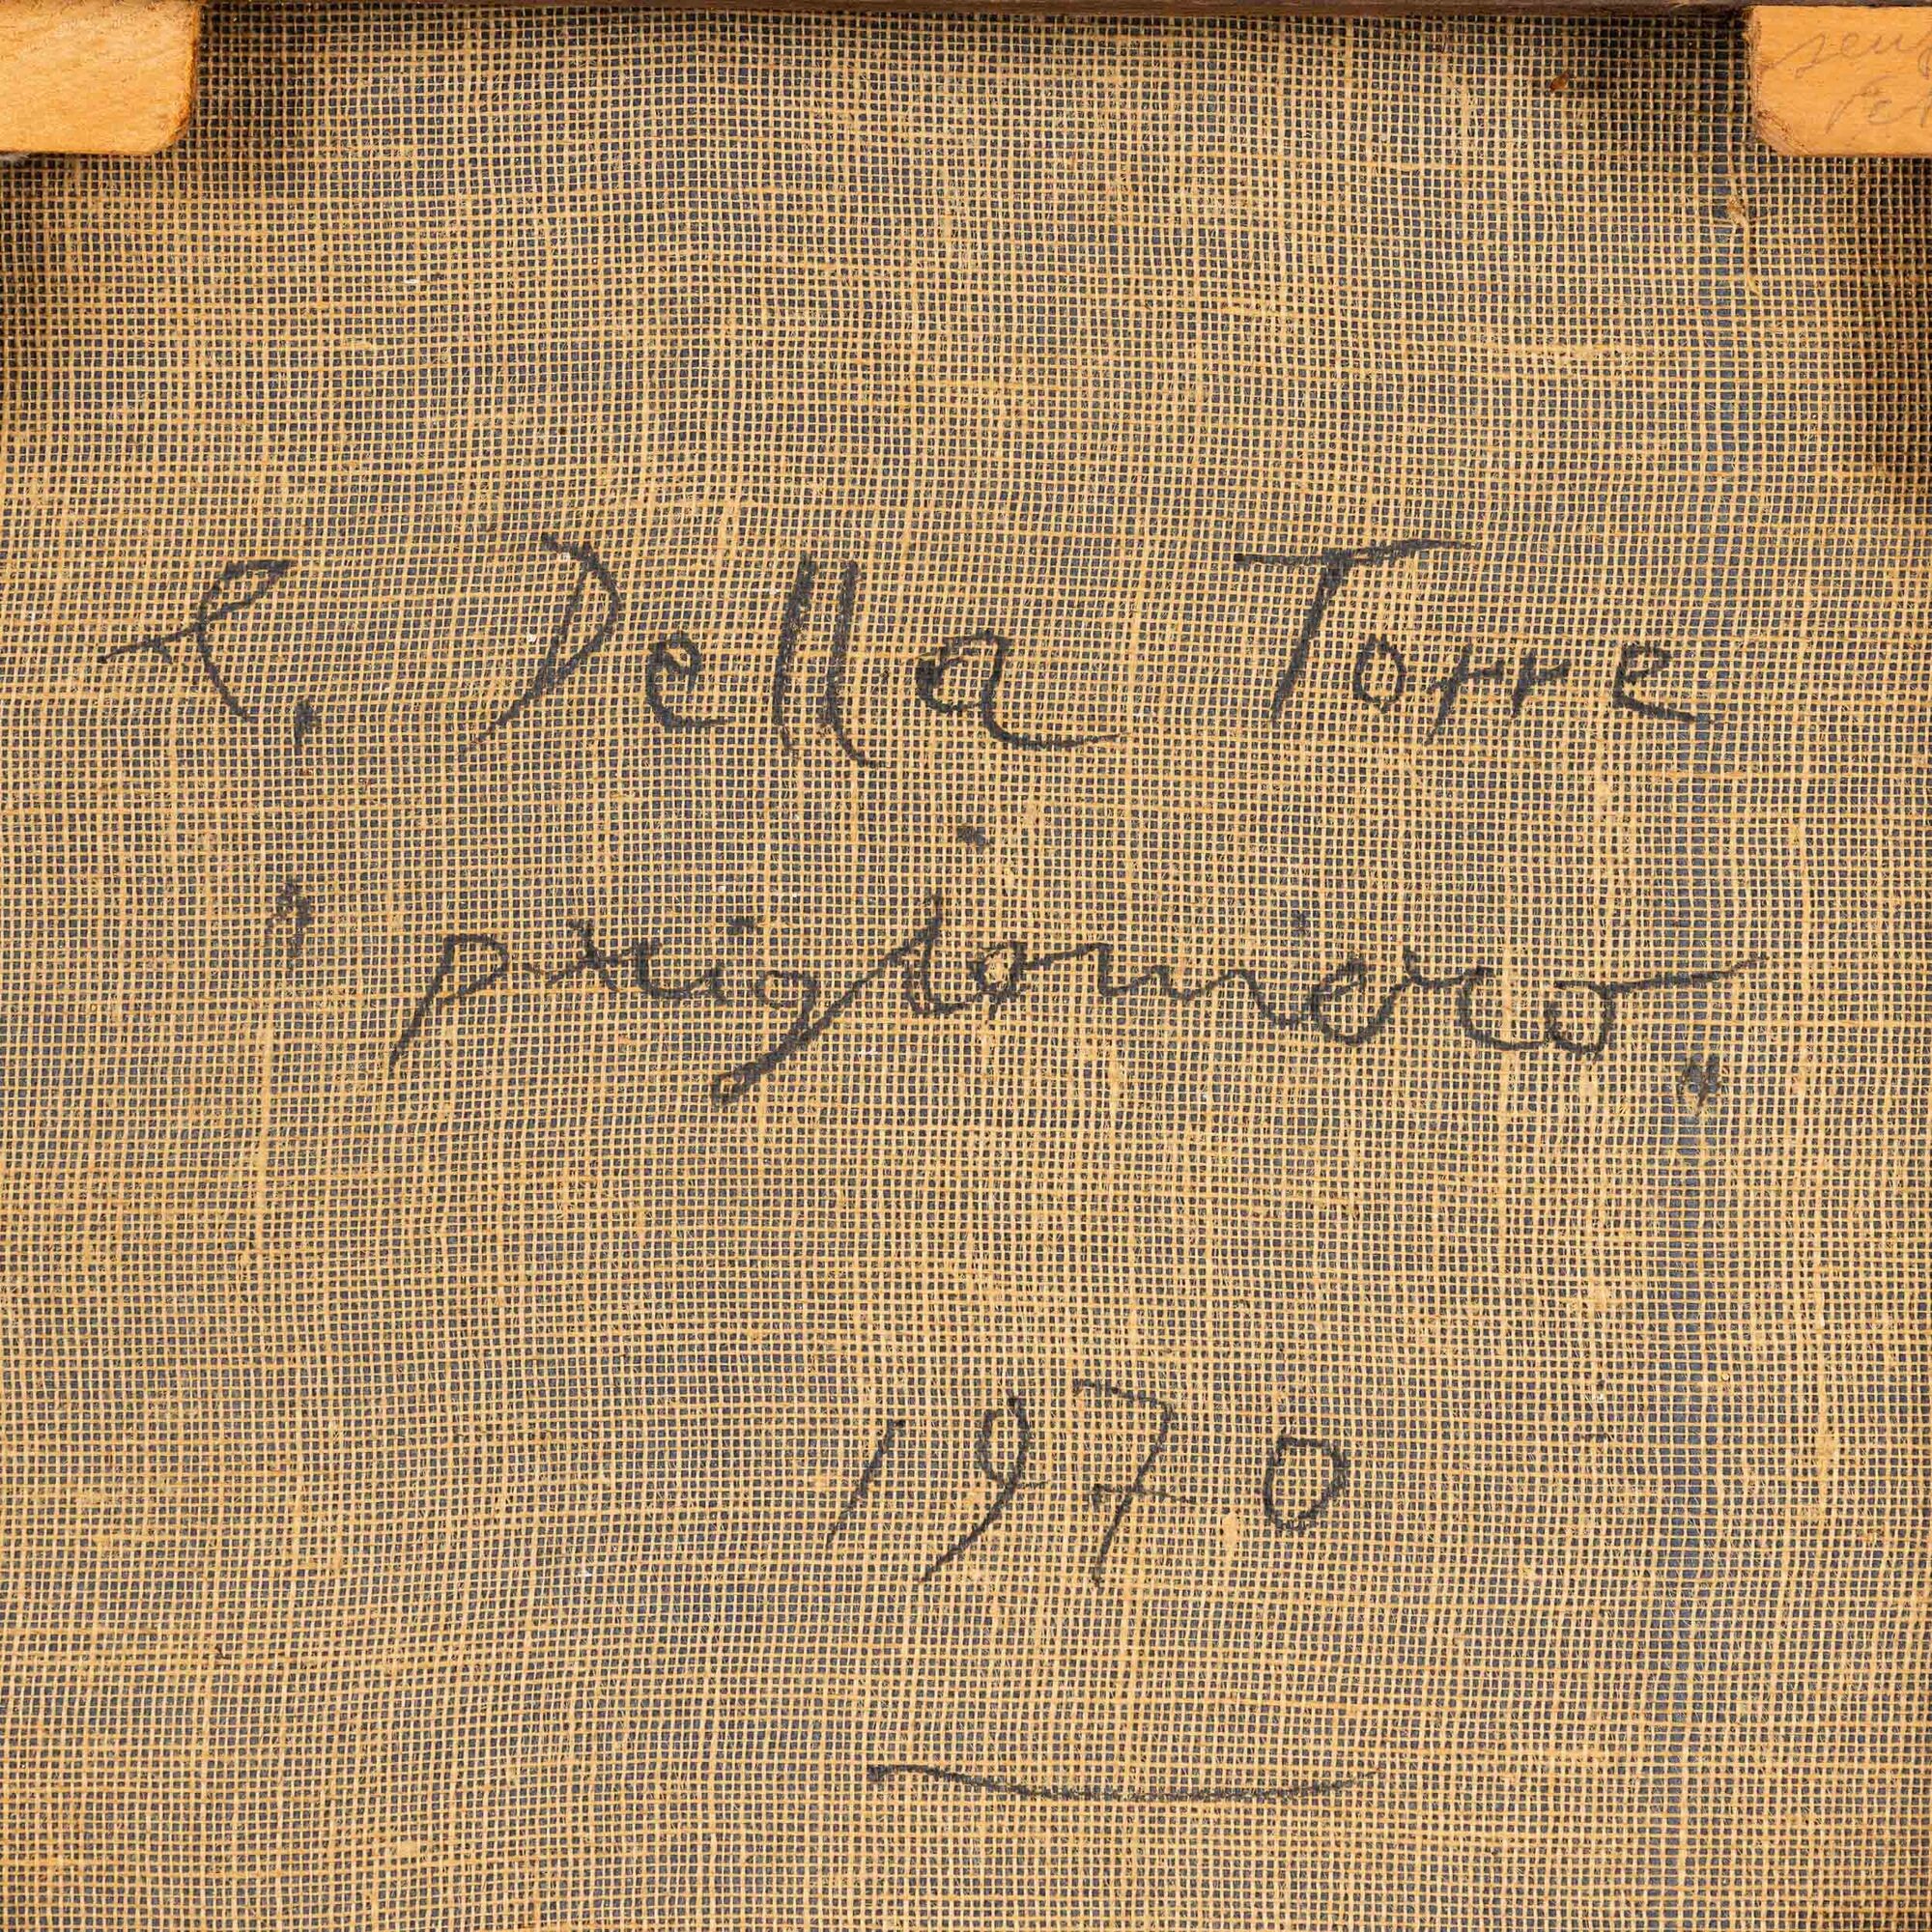 E. Della Torre
"prigioniero"
1970